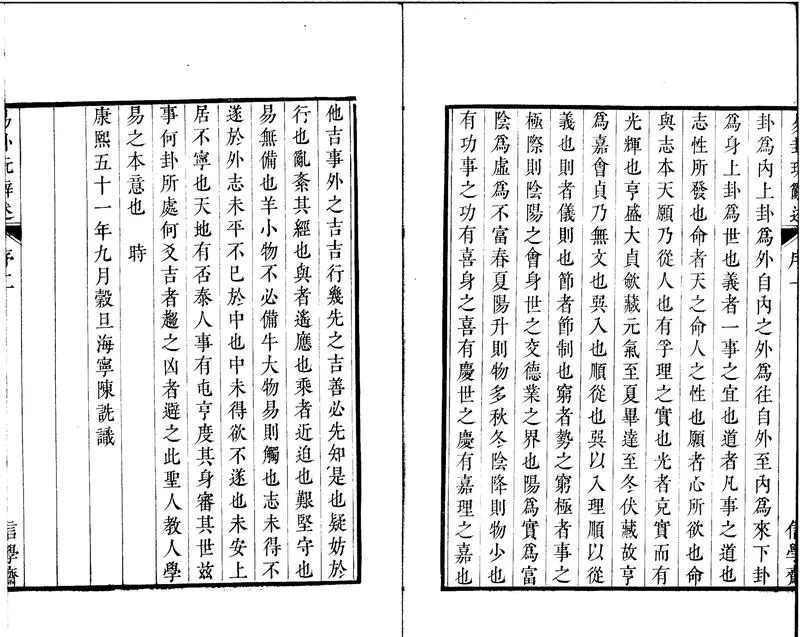 卦爲內上卦爲外自內之外爲往自外至內爲來下卦
爲身上卦爲世也義者一事之宜也道者凡事之道也
志性所發也命者天之命人之性也願者心所欲也命
與志本天願乃從人也有孚理之實也光者克實而有
光輝也亨盛大貞斂藏元氣至夏畢達至冬伏藏故亨
爲嘉會貞乃無文也巽入也順從也巽以入理順以從
義也則者儀則也節者節制也窮者勢之窮極者事之
極際則陰陽之會身世之交德業之界也陽爲實爲富
陰爲虛爲不富春夏陽升則物多秋冬陰降則物少也
有功事之功有喜身之喜有慶世之慶有嘉理之嘉也
信學齋
他吉事外之吉吉行幾先之吉善必先知是也疑妨於
行也亂紊其經也與者遙應也乘者近迫也艱堅守也
易無備也羊小物不必備牛大物易則觸也志未得不
遂於外志未平不已於中也中未得欲不遂也未安上
居不寧也天地有否泰人事有屯亨度其身審其世茲
事何卦所處何爻吉者趨之凶者避之此聖人教人學
易之本意也 時
康熙五十一年九月穀旦海寧陳詵識
序二
信學齋